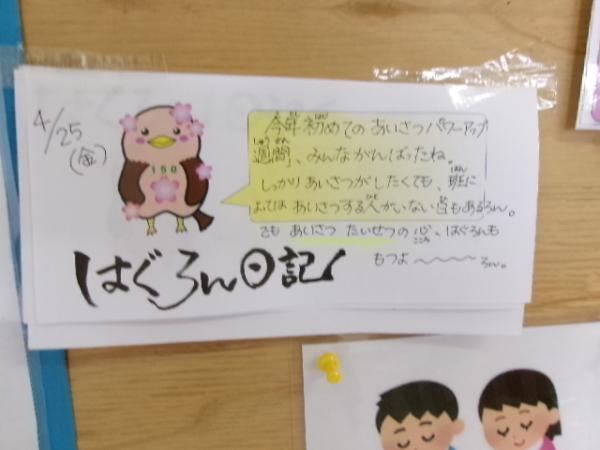 4/25
(金)
150
今年初めてのあいさつパワーアップ
週間、みんながんばったね。
しっかりあいさつがしたくても、班に
よってはあいさつする人がいない
もあるろん。
でも あいさつ たいせつの心、はぐろんも
もつよ〜〜〜ろん。
はぐろん日記